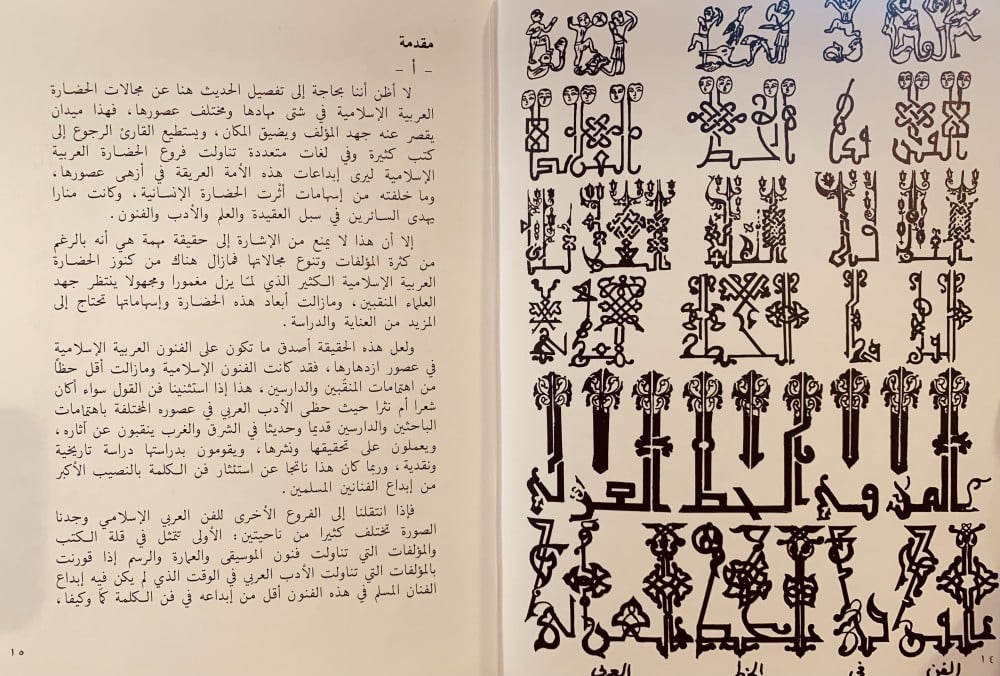 الفن في الخط العربي
١٤
مقدمة
- أ -
لا أظن أننا بحاجة إلى تفصيل الحديث هنا عن مجالات الحضارة
العربية الإسلامية في شتى مهادها ومختلف عصورها، فهذا ميدان
يقصر عنه جهد المؤلف ويضيق المكان، ويستطيع القارئ الرجوع إلى
كتب كثيرة وفي لغات متعددة تناولت فروع الحضارة العربية
الإسلامية ليرى إبداعات هذه الأمة العريقة في أزهى عصورها،
وما خلفته من إسهامات أثرت الحضارة الإنسانية، وكانت منارا
يهدى السائرين في سبل العقيدة والعلم والأدب والفنون.
إلا أن هذا لا يمنع من الإشارة إلى حقيقة مهمة هي أنه بالرغم
من كثرة المؤلفات وتنوع مجالاتها فمازال هناك من كنوز الحضارة
العربية الإسلامية الكثير الذي لمّا يزل مغمورا ومجهولا ينتظر جهد
العلماء المنقبين، ومازالت أبعاد هذه الحضارة وإسهاماتها تحتاج إلى
المزيد من العناية والدراسة.
ولعل هذه الحقيقة أصدق ما تكون على الفنون العربية الإسلامية
في عصور ازدهارها، فقد كانت الفنون الإسلامية ومازالت أقل حظاً
من اهتمامات المنقّبين والدارسين، هذا إذا استثنينا فن القول سواء أكان
شعرا أم نثرا حيث حظى الأدب العربي في عصوره المختلفة باهتمامات
الباحثين والدارسين قديما وحديثا في الشرق والغرب ينقبون عن آثاره،
ويعملون على تحقيقها ونشرها، ويقومون بدراستها دراسة تاريخية
ونقدية، وربما كان هذا ناتجا عن استئثار فن الكلمة بالنصيب الأكبر
من إبداع الفنانين المسلمين.
فإذا انتقلنا إلى الفروع الأخرى للفن العربي الإسلامي وجدنا
الصورة تختلف كثيرا من ناحيتين: الأولى تتمثل في قلة الكتب
والمؤلفات التي تناولت فنون الموسيقى والعمارة والرسم إذا قورنت
بالمؤلفات التي تناولت الأدب العربي في الوقت الذي لم يكن فيه إبداع
الفنان المسلم في هذه الفنون أقل من إبداعه في فن الكلمة كمّا وكيفا،
١٥